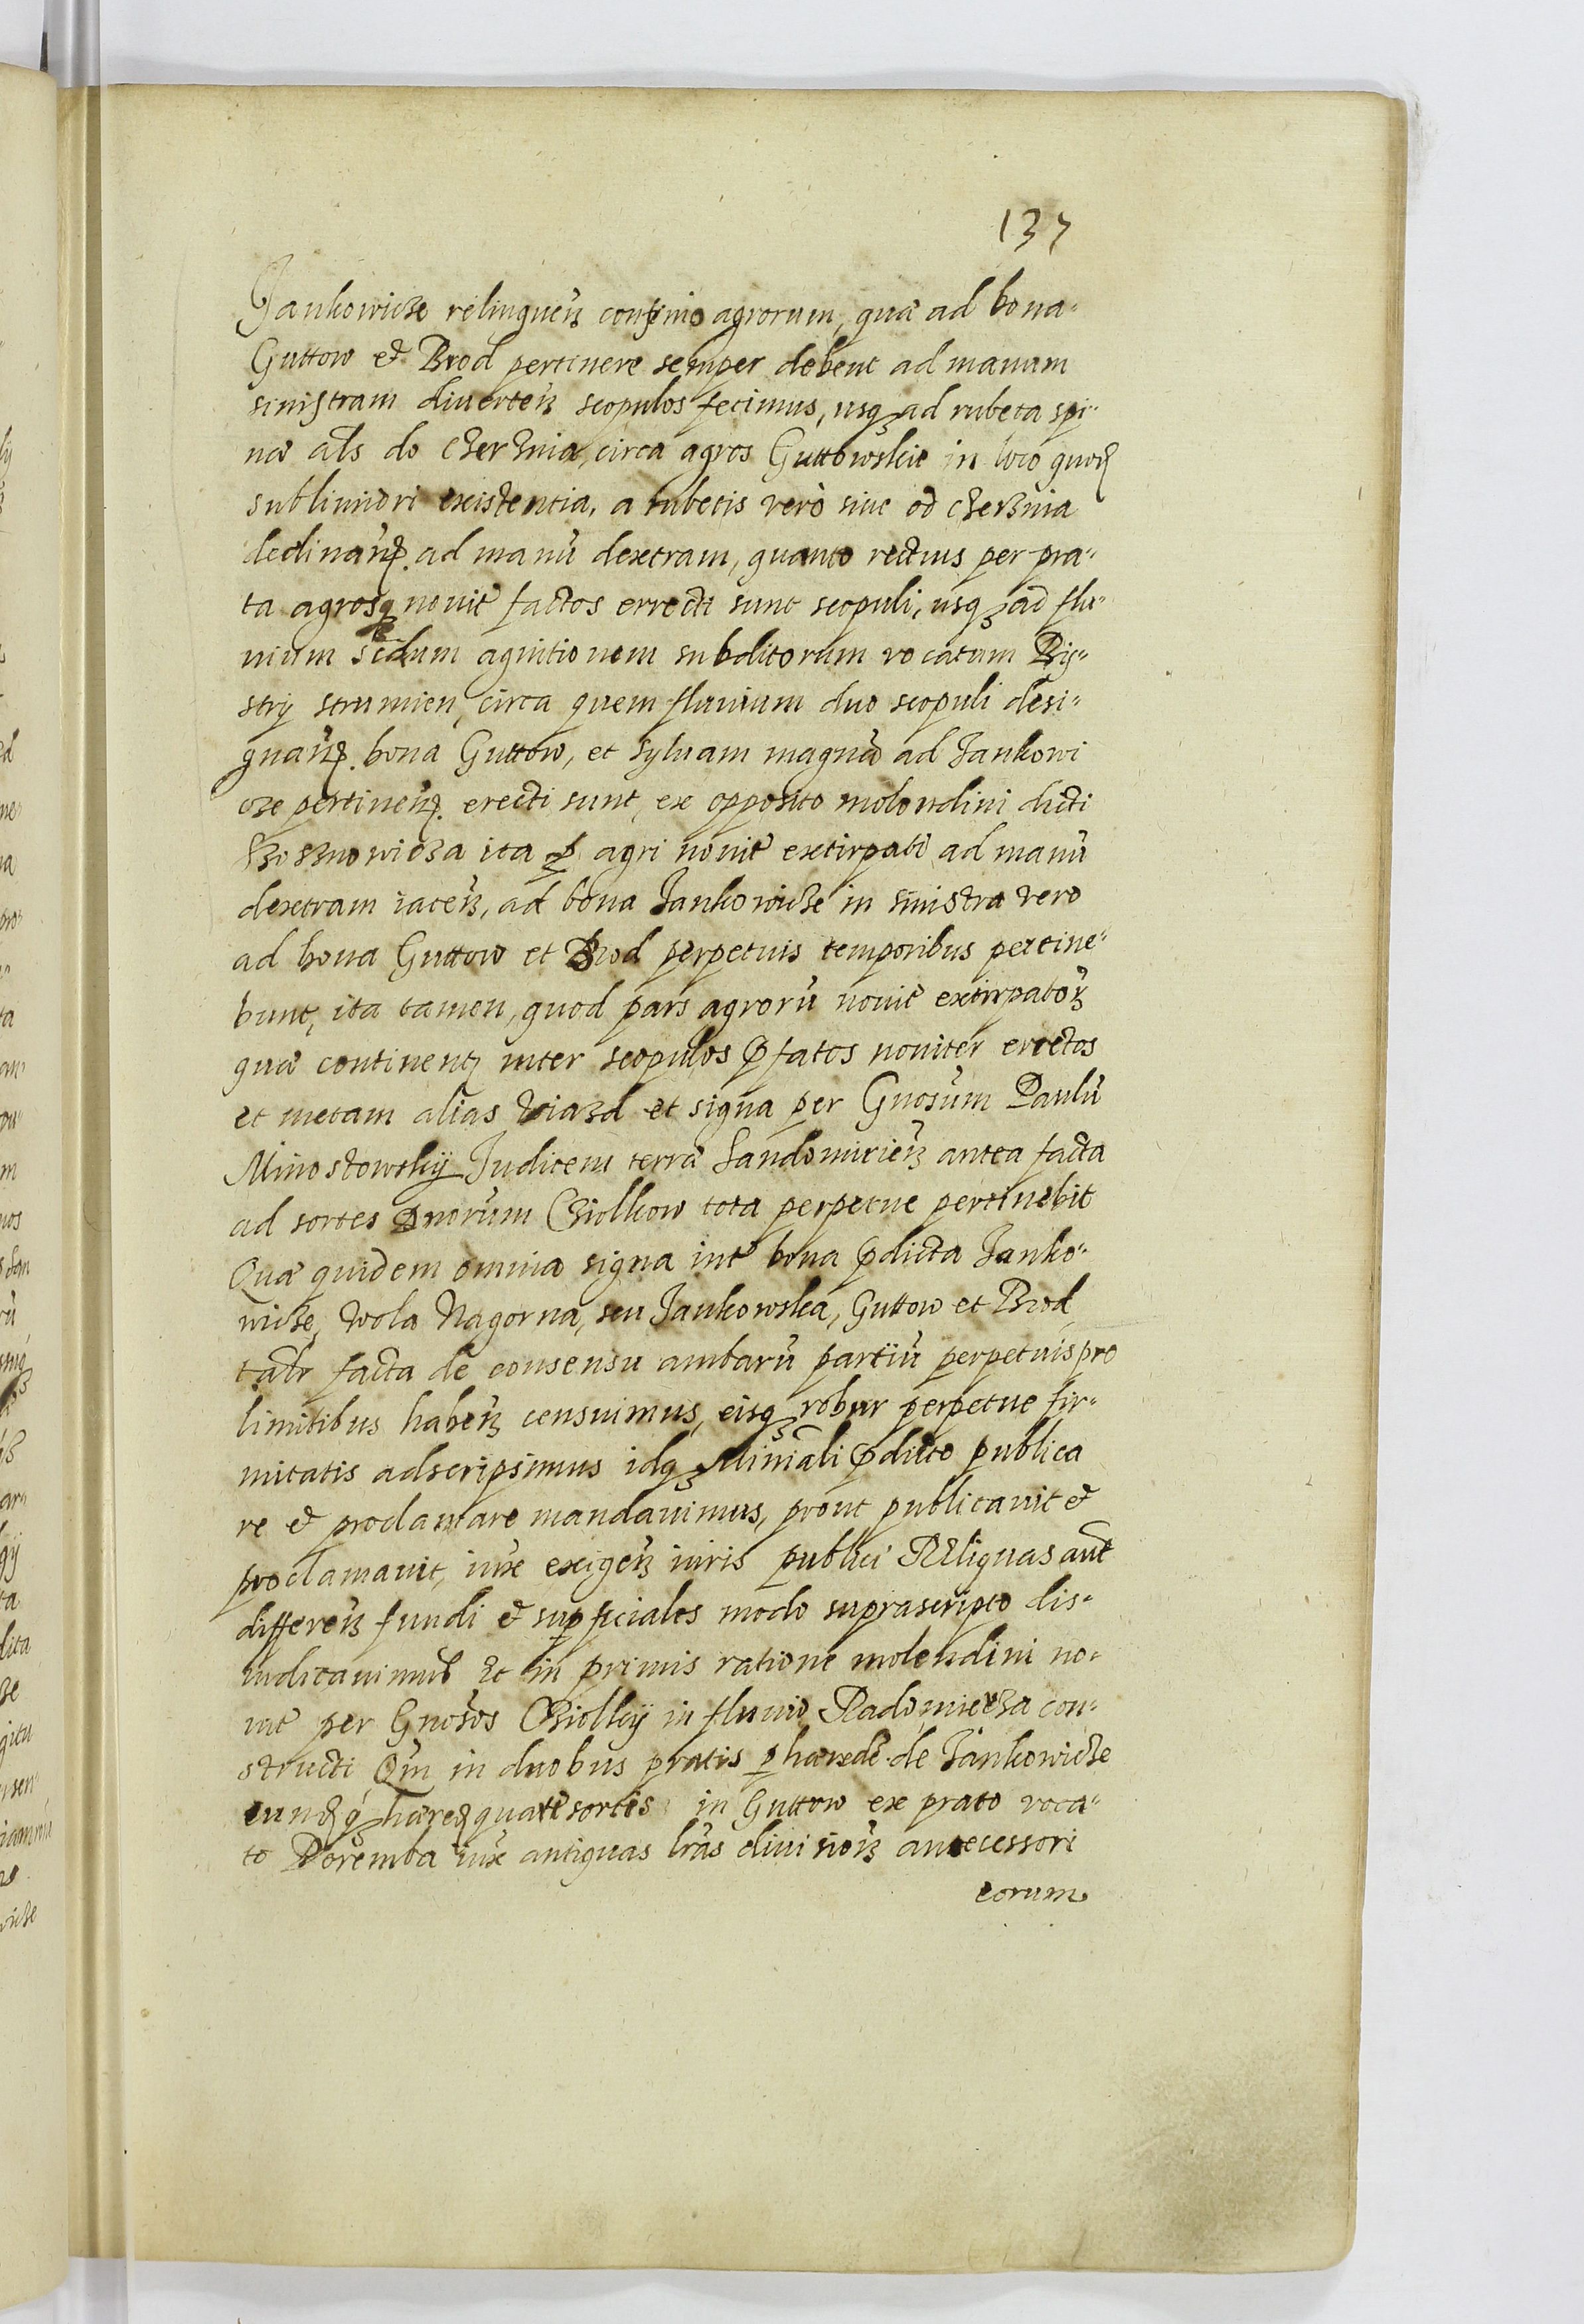 137
Jankowicze relinquen̄ confinio agrorum, quæ ad bona
Guttow et Brod pertinere semper debent ad manum
sinistram diverten̄ scopulos fecimus, usqꝫ ad rubeta spi-
næ als do czerznia, circa agros Guttowskie in loco quoqꝫ
sublimiori existentia, a rubetis verò siue od czerznia
declinan̄. ad manū dextram, quanto rectius per pra-
ta agrosqꝫ noviter factos errecti sunt scopuli, usqꝫ ad flu-
vium scdum agnitionem subditorum vocatum Bis-
strÿ strumien, circa quem fluvium duo scopuli desi-
gnan̄. bona Guttow, et sylvam magnā ad Jankowi
cze pertinen̄. erecti sunt, ex opposito molendini dicti
ita ꝙ agri novitr̄ extirpati ad manū
dextram iacen̄, ad bona Jankowicze in sinistra vero
ad bona Guttow et Brod perpetuis temporibus pertine-
bunt, ita tamen, quod pars agrorū novitr̄ extirpator̄
quæ continentꝫ inter scopulos p̄fatos noviter erectos
et metam alias wiazd et signa per Gnosum Paulū
Minostowskÿ Judicem terræ Sandomirien̄ antea facta
ad sortes Dnorum Cziolkow tota perpetue pertinebit
Quæ quidem omnia signa intr̄ bona p̄dicta Janko-
wicze, Wola Nagorna, seu Jankowska, Guttow et Brod
talr̄ facta de consensu ambarū partiū perpetuis pro
limitibus haben̄ censuimus, eisqꝫ robur perpetue fir-
mitatis adscripsimus idqꝫ Minrāli p̄dicto publica
re et proclamare mandavimus, prout publicavit et
proclamavit, iuxe exigen̄ iuris publici Reliquas aut̄
differen̄ fundi et supficiales modo suprascripto dis-
iudicavimus Et in primis ratione molendini no-
vitr̄ per Gnosos Cziolkÿ in fluvio Radomierza con-
structi Qm̄ in duobus pratis ꝑ hæredē. de Jankowicze
sortis in Guttow ex prato voca-
to Poremba iuxe antiquas lrās division̄ antecessori
eorum